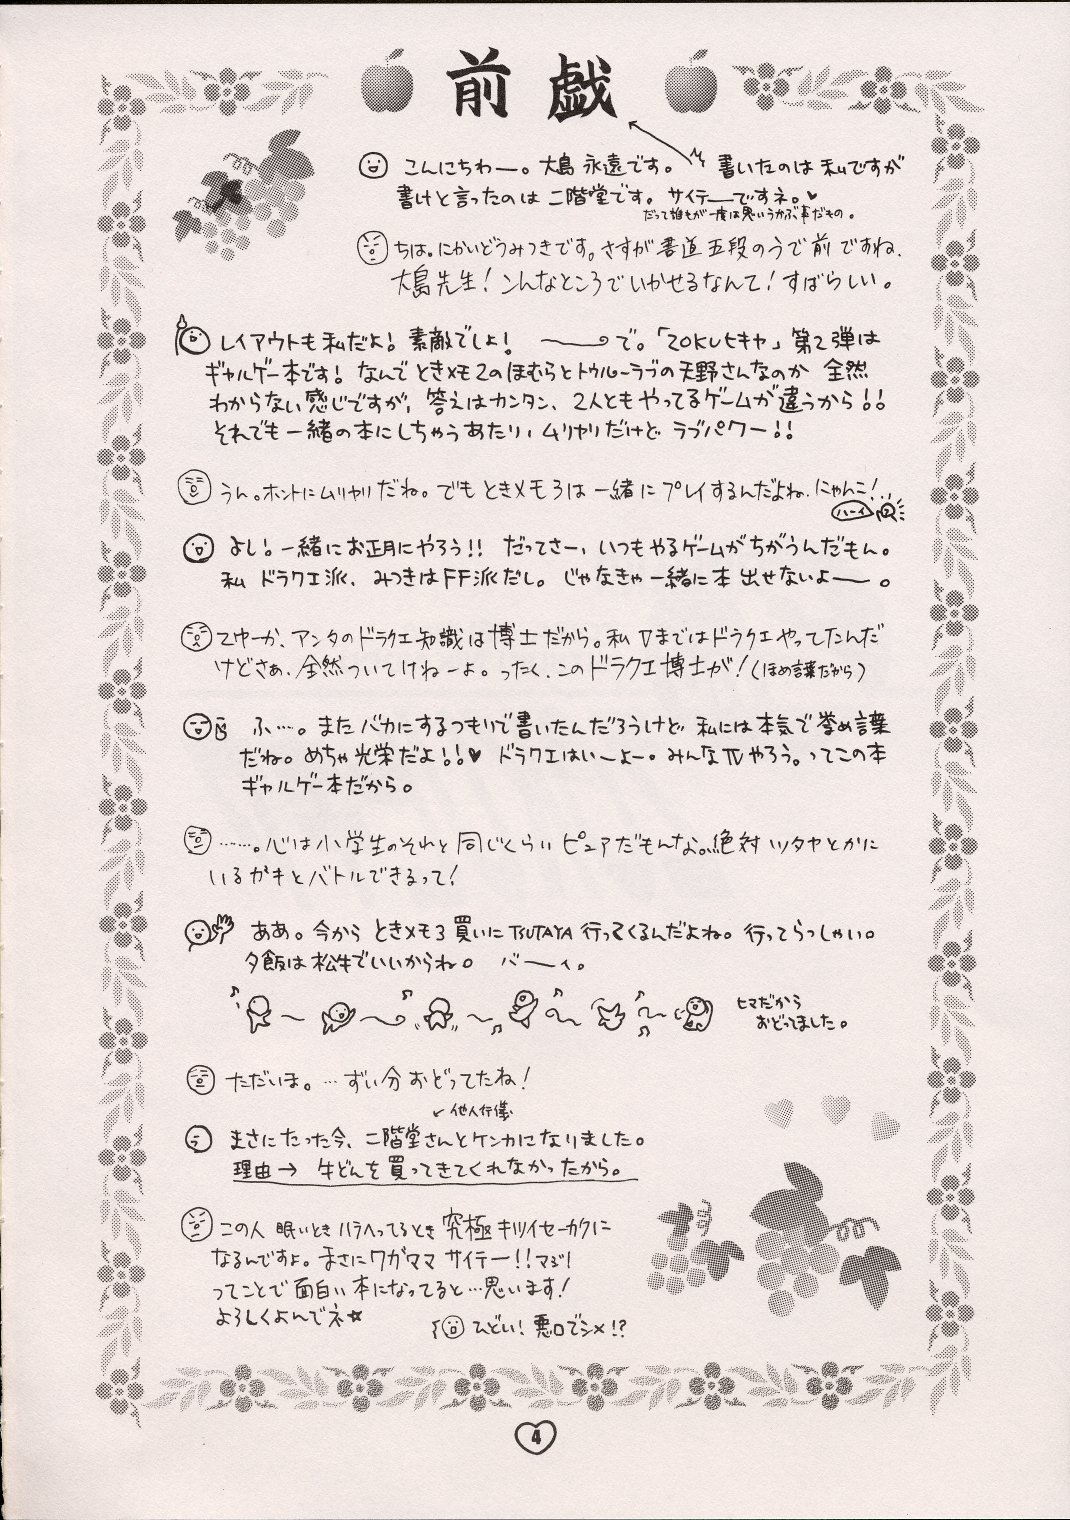 前戯
こんにちわー。大島 永遠です。 書いたのは 私ですが
書けと言ったのは 二階堂です。サイテーですネ。♥
だって誰もが一度は思いうかぶ事だもの。
ちは。にかいどうみつきです。さすが書道五段のうで前ですね、
大島先生!こんなところでいかせるなんて!すばらしい。
レイアウトも私だよ!素敵でしょ! 〜で。「20KUヒキャ」第2弾は
ギャルゲー本です!なんでときメモ2のほむらとトゥルーラブの天野さんなのか 全然
わからない感じですが、答えはカンタン、2人ともやってるゲームが違うから!!
それでも一緒の本にしちゃうあたり、ムリヤリだけど ラブパワー!!
うん。ホントにムリヤリだね。でもときメモ3は一緒にプレイするんだよね、にゃんこ!
ハーイ
よし!一緒にお正月にやろう!! だってさー、いつもやるゲームがちがうんだもん。
私 ドラクエ派、みつきはFF派だし。じゃなきゃ一緒に本出せないよー。
てゆーか、アンタのドラクエ知識は博士だから。私 Vまではドラクエやってたんだ
けどさぁ、全然ついてけねーよ。ったく、このドラクエ博士が!(ほめ言葉だから)
ふ…。またバカにするつもりで書いたんだろうけど 私には本気で誉め言葉
だね。めちゃ光栄だよ!!♥ ドラクエはいーよー。みんなIVやろう。ってこの本
ギャルゲー本だから。
……。心は小学生のそれと同じくらいピュアだもんな。絶対ツタヤとかに
いるガキとバトルできるって!
ああ。今からときメモ3買いにTSUTAYA行ってくるんだよね。行ってらっしゃい。
夕飯は松牛でいいからね。 バーィ。
ヒマだから
おどってました。
ただいま。…ずい分おどってたね!
他人行儀
まさにたった今、二階堂さんとケンカになりました。
理由→ 牛どんを買ってきてくれなかったから。
この人 眠いときハラヘってるとき究極キツイセーカクに
なるんですよ。まさにワガママ サイテー!!マジ!
ってことで面白い本になってると…思います!
よろしくよんでネ☆
ひどい!悪口でシメ!?
4